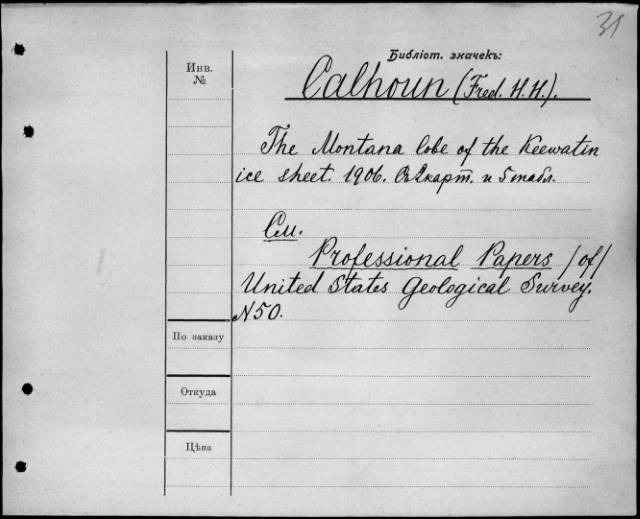 31
Библіот. значекъ:
Инв.
№
Calhoun (Fred. H. H.).
The Montana lobe of the Keewatin
ice sheet. 1906. Съ 2 карт. и 5 табл.
См.
Professional Papers /of/
United States Geological Survey.
N50.
По заказу
Откуда
Цѣна